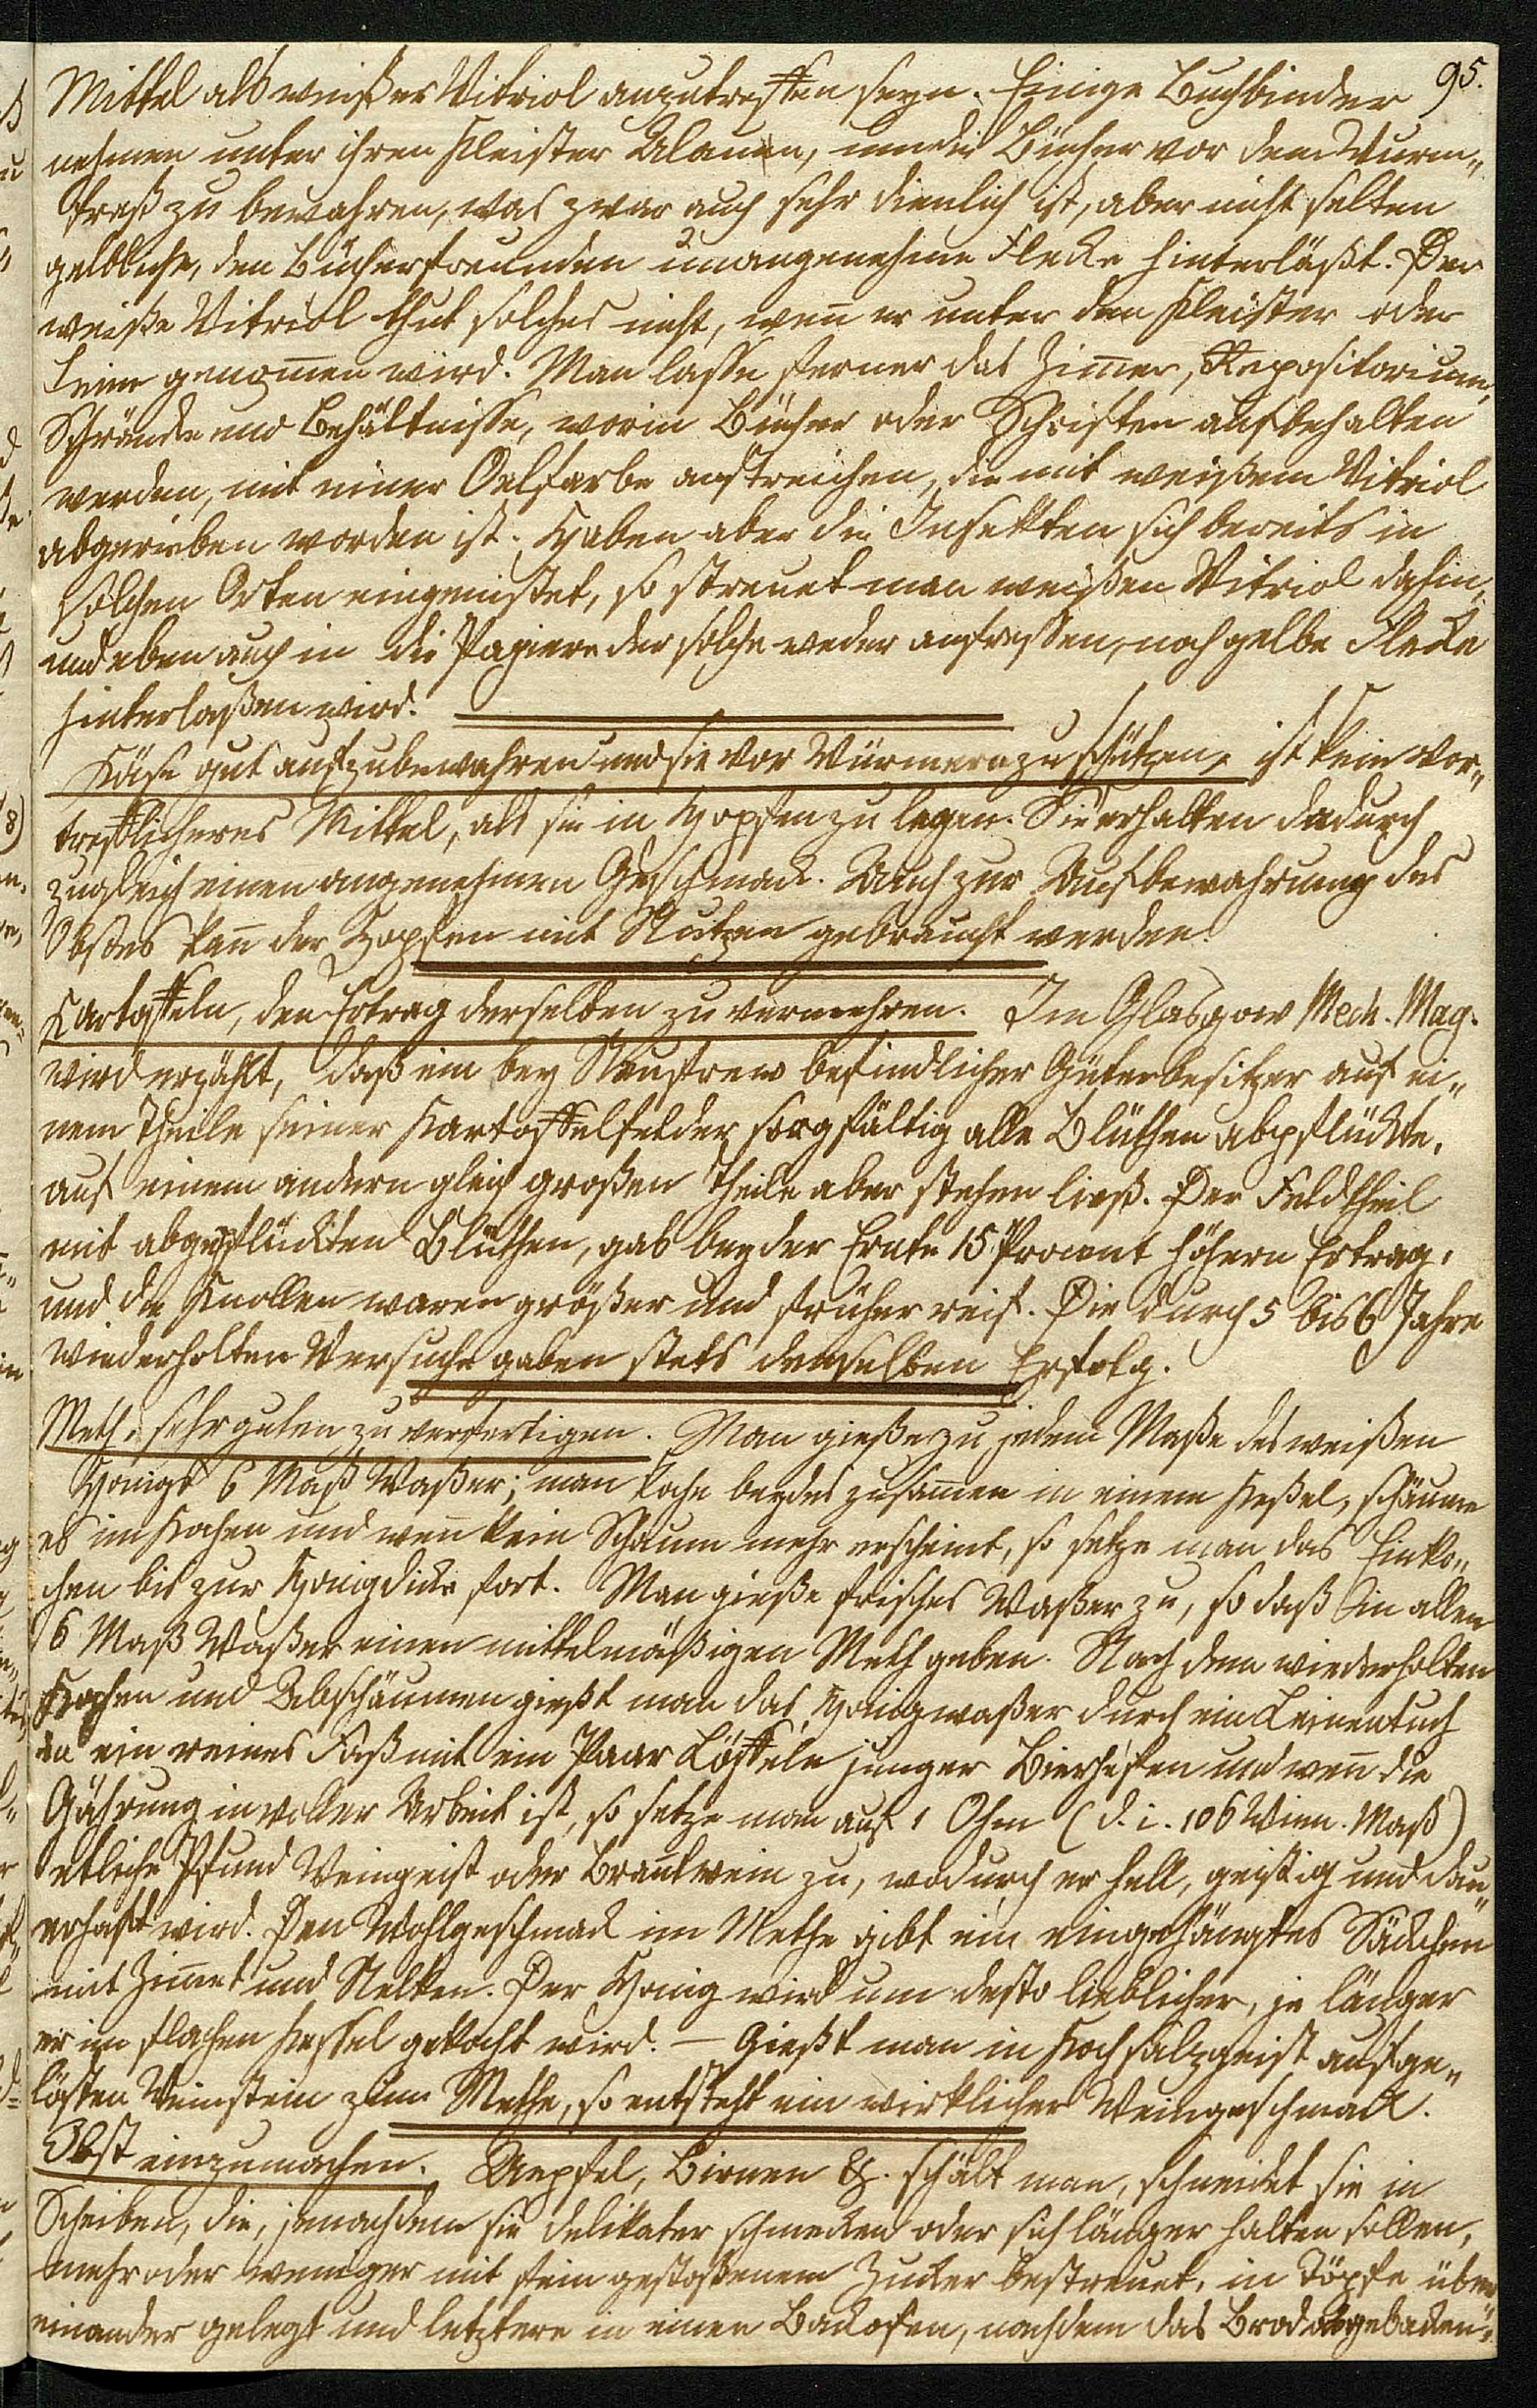 95.
Mittel als weißer Vitriol anzutreffen seyn. Einige Buchbinder
nehmen unter ihren Kleister Alaun, um die Bücher vor dem Wurm„
fraß zu bewahren, was zwar auch sehr dienlich ist, aber nicht selten
gelbliche, den Bücherfreunden unangenehme Flecke hinterläßt. Der
weiße Vitriol thut solches nicht, weñ er unter den Kleister oder
Leim genom̄en wird. Man lasse ferner das Zim̄er, Repositorium,
Schränke und Behältnisse, worin Bücher oder Schriften aufbehalten
werden, mit einer Oelfarbe anstreichen, die mit weißem Vitriol
abgerieben worden ist. Haben aber die Insekten sich bereits in
solchen Orten eingenistet, so streuet man weißen Vitriol dahin,
und eben auch in die Papiere der solche weder anfressen, noch gelbe Flecke
hinterlaßen wird.
Käse gut aufzubewahren und sie vor Würmern zu schützen, ist kein vor„
trefflicheres Mittel, als sie in Hopfen zu legen. Sie erhalten dadurch
zugleich einen angenehmen Geschmack. Auch zur Aufbewahrung des
Obstes kañ der Hopfen mit Nutzen gebraucht werden.
Kartoffeln, den Ertrag derselben zu vermehren. Im Glasgow Mech. Mag.
wird erzählt, daß ein bey Renfrew befindlicher Güterbesitzer auf ei„
nem Theile seiner Kartoffelfelder sorgfältig alle Blüthen abpflückte,
auf einem andern gleich großen Theile aber stehen ließ. Der Feldtheil
mit abgepflückten Blüthen, gab bey der Ernte 15 Procent höhern Ertrag,
und die Knollen waren größer und früher reif. Die durch 5 bis 6 Jahre
wiederholten Versuche gaben stets denselben Erfolg.
Meth, sehr guten zu verfertigen. Man gieße zu jedem Maße des weißen
Honigs 6 Maß Waßer; man koche beydes zusam̄en in einem Keßel, schäume
es im Kochen und weñ kein Schaum mehr erscheint, so setze man das Einko„
chen bis zur Honigdicke fort. Man gieße frisches Waßer zu, so daß in allem
6 Maß Waßer einen mittelmäßigen Meth geben. Nach dem wiederholten
Kochen und Abschäumen gießt man das Honigwaßer durch ein Leinentuch
in ein reines Faß mit ein Paar Löffeln junger Bierhefen und weñ die
Gährung in voller Arbeit ist, so setze man auf 1 Ohm (d. i. 106 Wien. Maß)
etliche Pfund Weingeist oder Brantwein zu, wodurch er hell, geistig und dau„
erhaft wird. Den Wohlgeschmack im Methe gibt ein eingehängtes Säckchen
mit Zim̄et und Nelken. Der Honig wird um desto lieblicher, je länger
er im flachen Kessel gekocht wird. — Gießt man in Kochsalzgeist aufge„
lösten Weinstein zum Methe, so entsteht ein wirklicher Weingeschmack.
Obst einzumachen. Aepfel, Birnen &. schält man, schneidet sie in
Scheiben, die, jenachdem sie delikater schmecken oder sich länger halten sollen,
mehr oder weniger mit fein gestoßenem Zucker bestreuet, in Töpfe über„
einander gelegt und letztere in einen Backofen, nachdem das Brod ausgebacken„